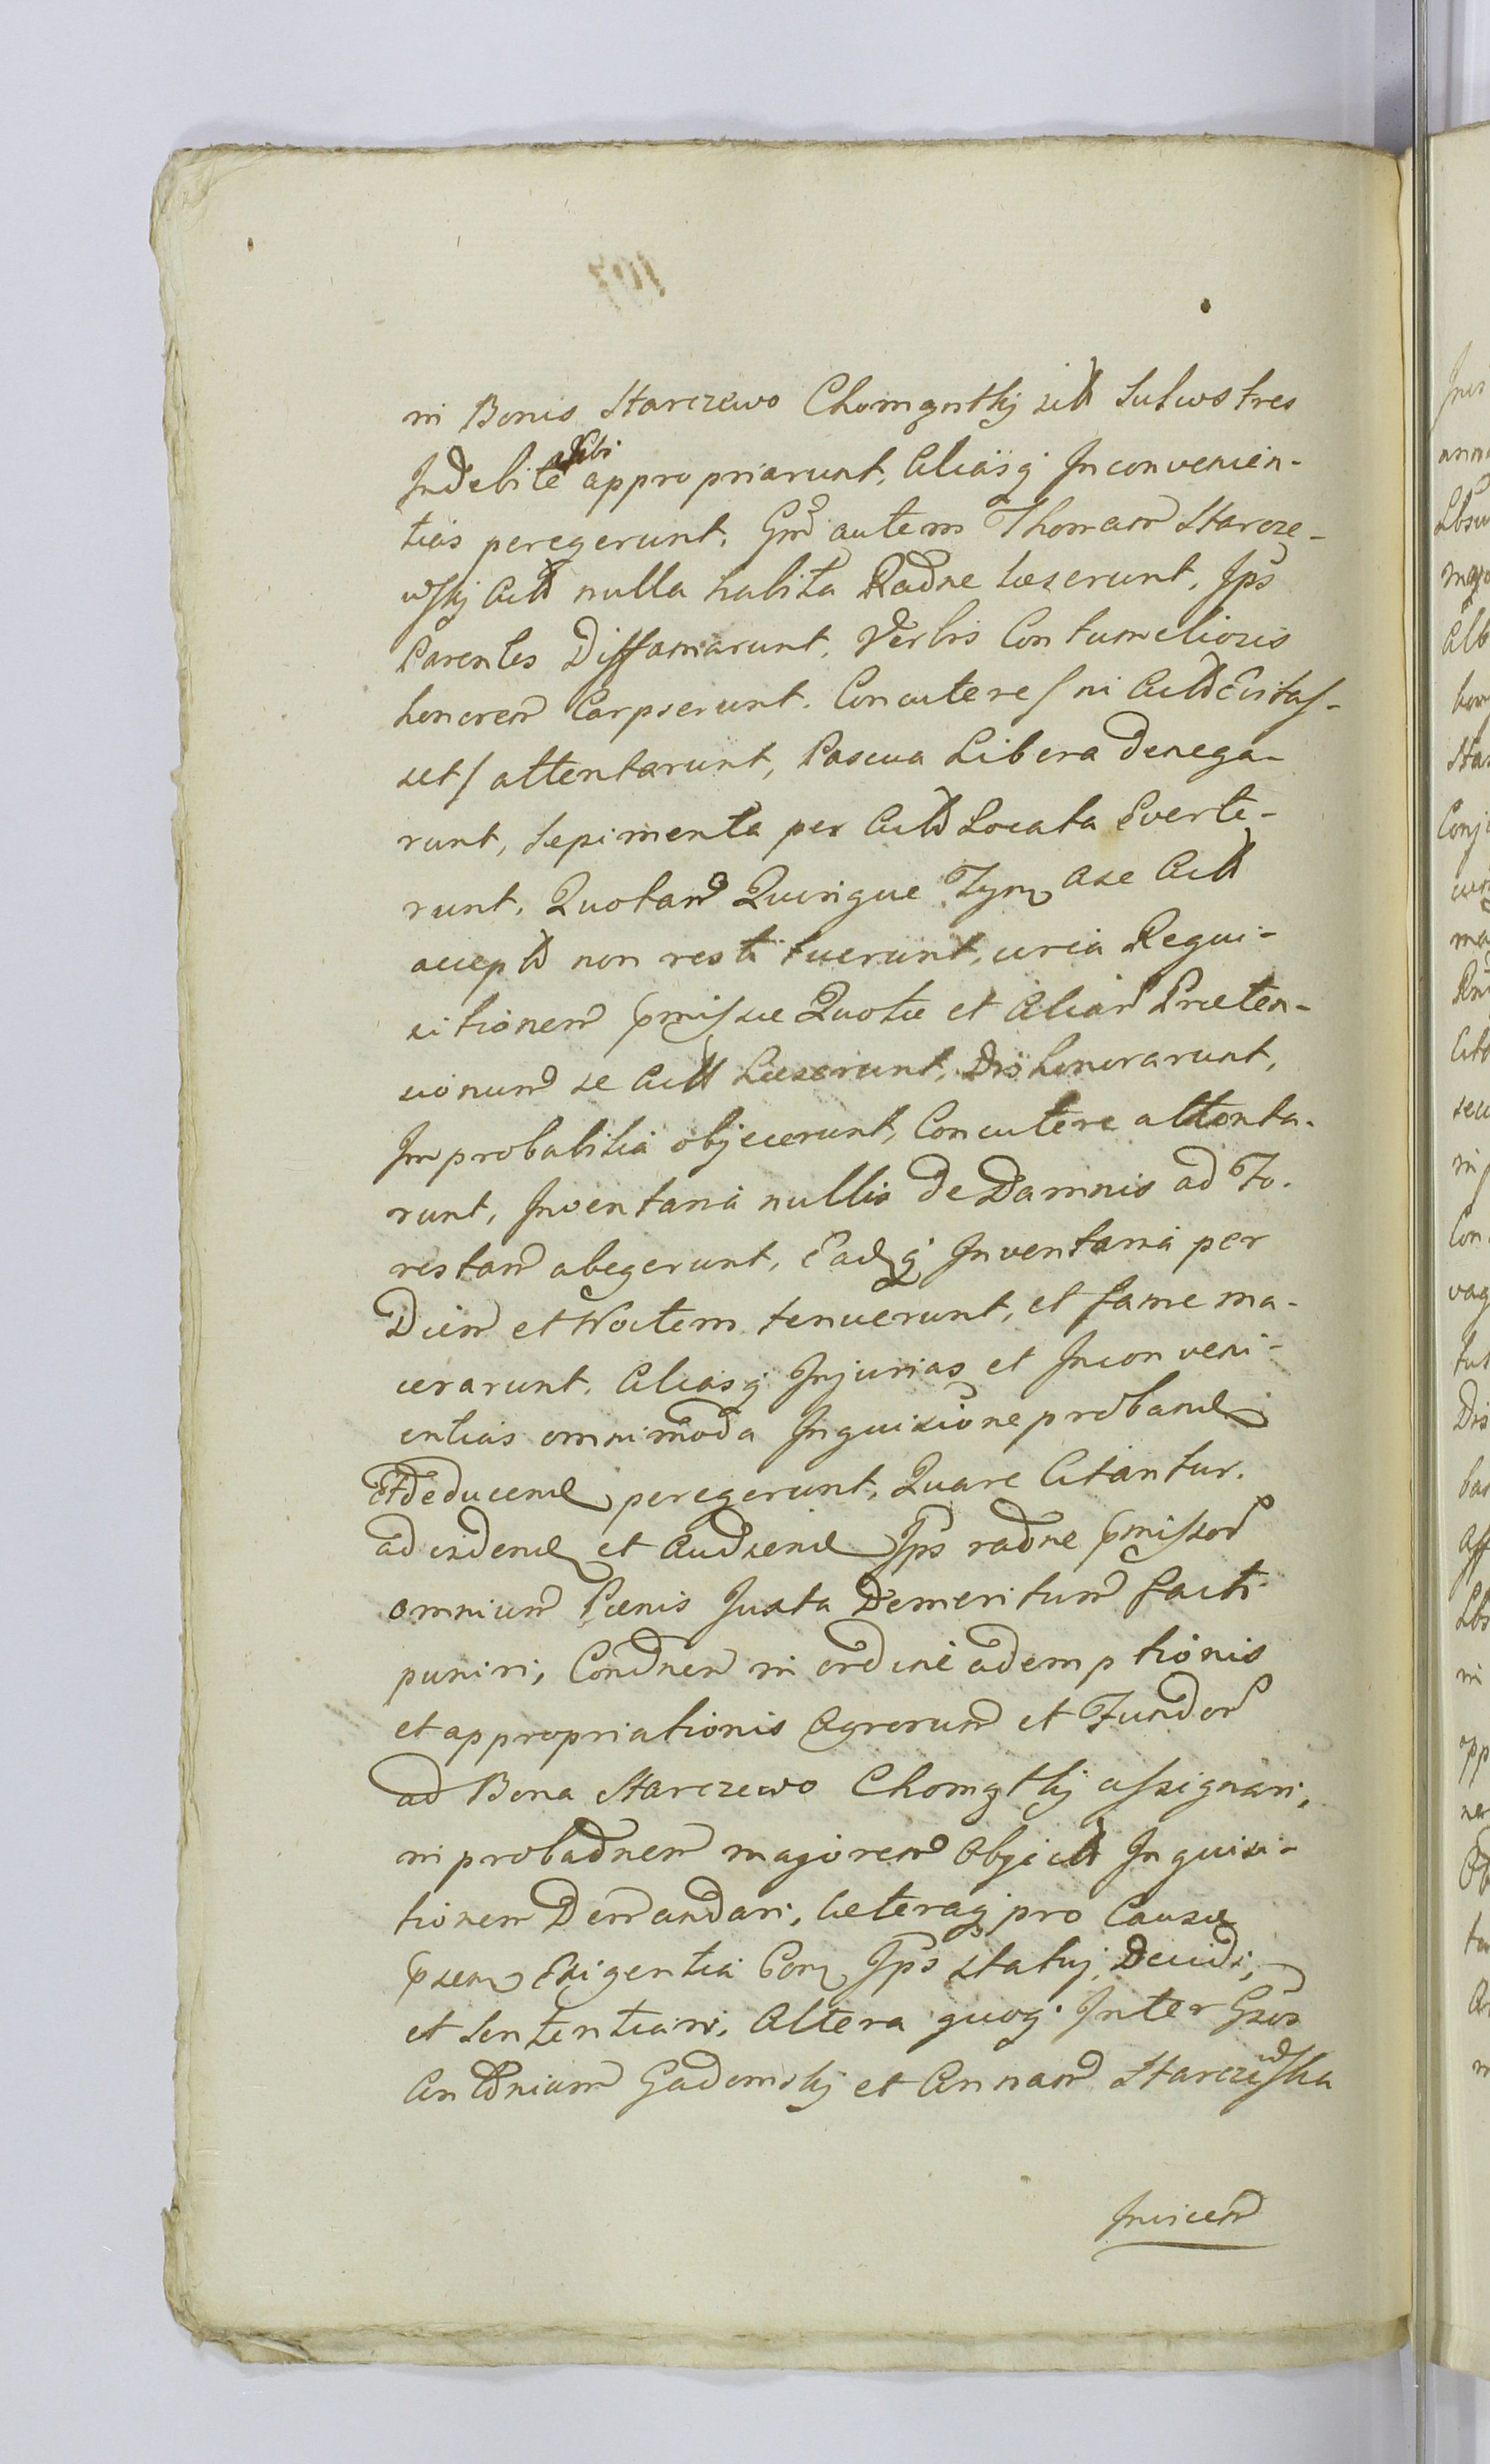 in Bonis Starczewo Chomgntkj sitt Sylvestres
sibi
Indebite appropriarunt, Aliasq Inconvenien-
tias peregerunt. Gnd autem Thomam Starcze-
wskj Actt nulla habita Radne læserunt. Jps
Parentes Diffamarunt, Verbis Contumeliosis
honorem Carpserunt. Concutere / ni Actt Evitas-
set / attentarunt, Pascua Libera denega-
runt, Sepimenta per Actt Locata Everte-
runt, Quotam Quinque Tym ase Actt
accepttt non restituerunt, circa Requi-
sitionem pmissæ Quotæ et Aliar Præten-
sionum se Actt Læserunt, Dishonorarunt,
Improbabilia objecerunt, Concutere attenta-
runt, Inventaria nullis de Damnis ad Fo-
restam abegerunt, Eadq Inventaria per
Diem et Noctem tenuerunt, et fame ma-
cerarunt. Aliasq Injurias et Inconveni-
entias omnimoda Inquisione proband
Et deducend peregerunt, Quare Citantur.
ad vidend et Audiend Jps radne pmissor
omnium Pœnis Juxta Demeritum facti
puniri, Condnem in ordine ademptionis
et appropriationis Agrorum et Fundor
ad Bona Starczewo Chomgtkj assignari,
in probadnem majorem Objectt Inquisi-
tionem Demandari, Cæteraq pro Causæ
psen Exigentia Con Jps statuj, Decidi,
et Sententiari. Altera quoq Inter Gsos
Antonium Gadomskj et Annam Starczewska
Invicem